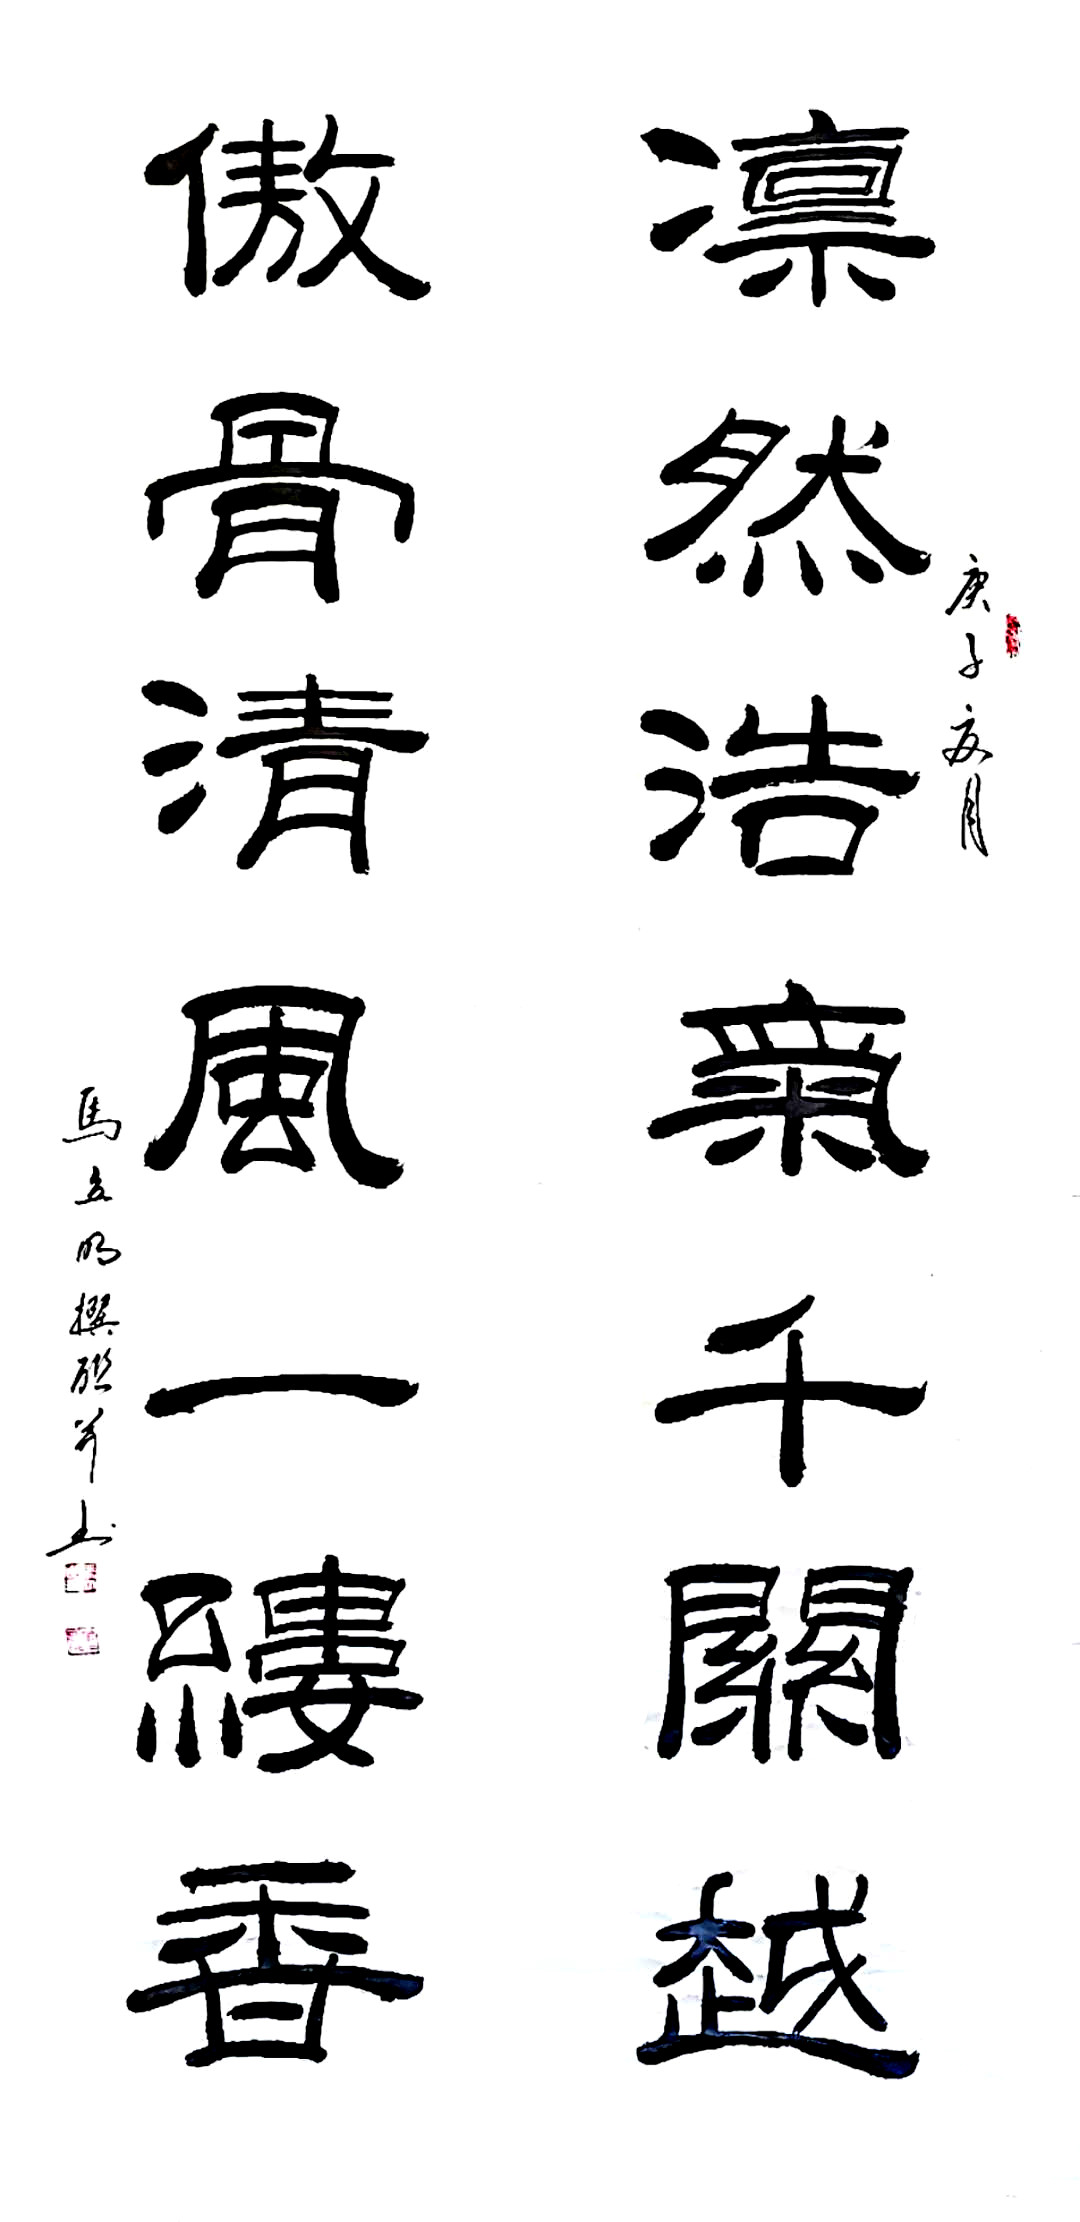 凛然浩氣千關越
庚子夏月
傲骨清風一縷香
馬立明撰联并书